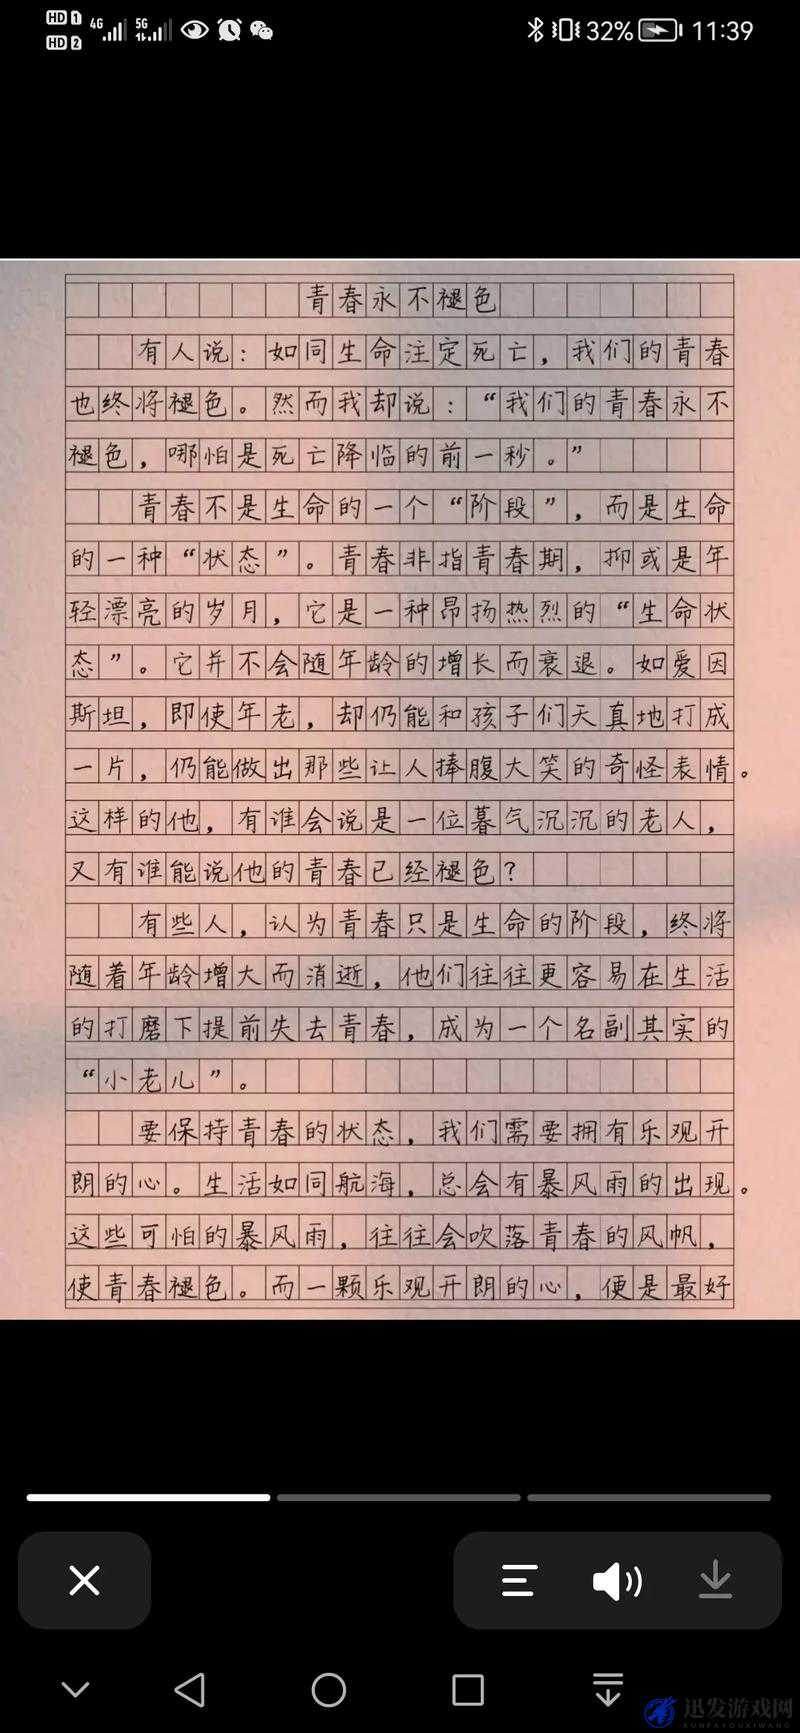 HD 1 4G 5G 32% 11:39
HD 2
青春永不褪色
有人说：如同生命注定死亡，我们的青春
也终将褪色。然而我却说：“我们的青春永不
褪色，哪怕是死亡降临的前一秒。”
青春不是生命的一个“阶段”，而是生命
的一种“状态”。青春非指青春期，抑或是年
轻漂亮的岁月，它是一种昂扬热烈的“生命状
态”。它并不会随年龄的增长而衰退。如爱因
斯坦，即使年老，却仍能和孩子们天真地打成
一片，仍能做出那些让人捧腹大笑的奇怪表情。
这样的他，有谁会说是一位暮气沉沉的老人，
又有谁能说他的青春已经褪色？
有些人，认为青春只是生命的阶段，终将
随着年龄增大而消逝，他们往往更容易在生活
的打磨下提前失去青春，成为一个名副其实的
“小老儿”。
要保持青春的状态，我们需要拥有乐观开
朗的心。生活如同航海，总会有暴风雨的出现。
这些可怕的暴风雨，往往会吹落青春的风帆，
使青春褪色。而一颗乐观开朗的心，便是最好
迅发游戏网
XUNFAYOUXIWANG